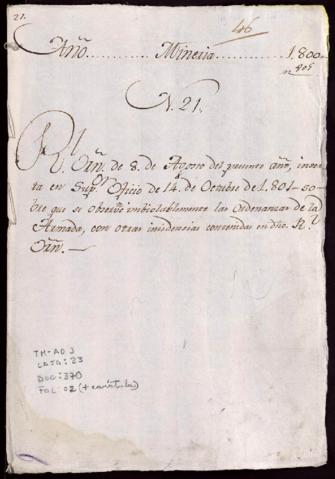 21.
46
Año ......... Mineria ......... 1,800
N. 21.
Rl. Orñ. de 8. de Agosto del presente año, inser
ta en Supor. Oficio de 14. de Octubre de 1.801. so-
bre que se observe imbiolablemente las Ordenanzas de la
Armada, con otras insidencias contenidas en dha. Rl.
Orñ.
TM-AO3
CAJA: 23
DOC: 370
FOL: 02 (+ carátula)